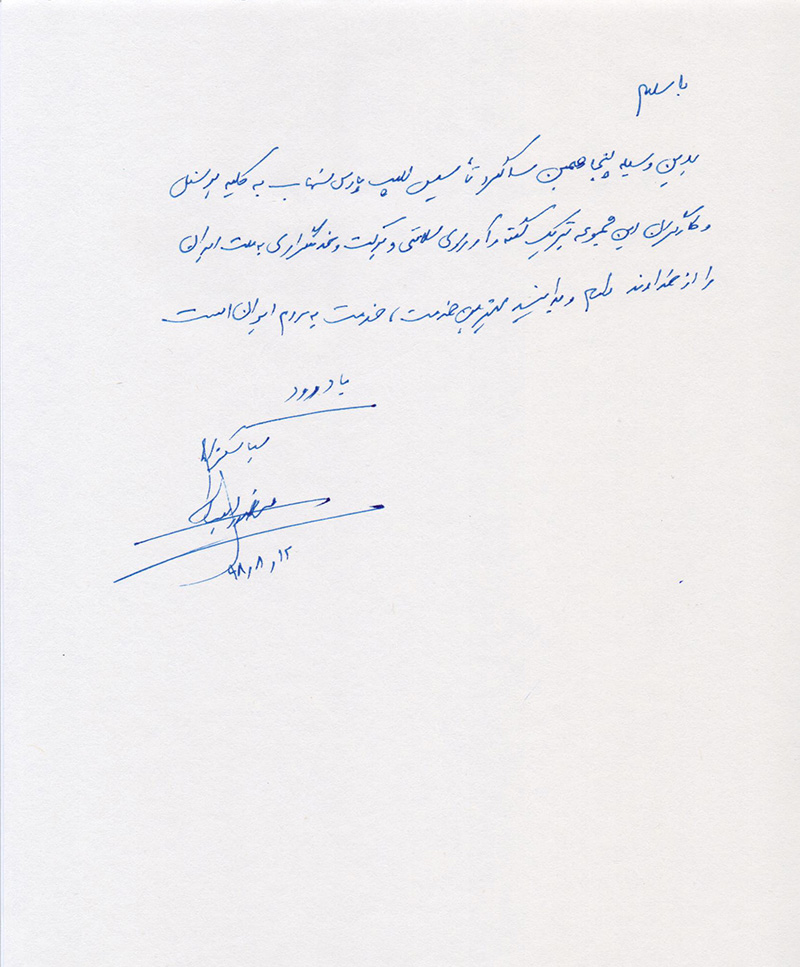 با سلام
بدین وسیله پنجاهمین سالگرد تأسیس لامپ پارس شهاب به کلیه پرسنل
و کارگران این مجموعه تبریک گفته و آرزوی سلامتی و برکت و خدمتگزاری به ملت ایران
را از خداوند دارم و بدانید بهترین خدمت، خدمت به مردم ایران است
با درود
سپاسگزار
۹۸٫۸٫۱۲